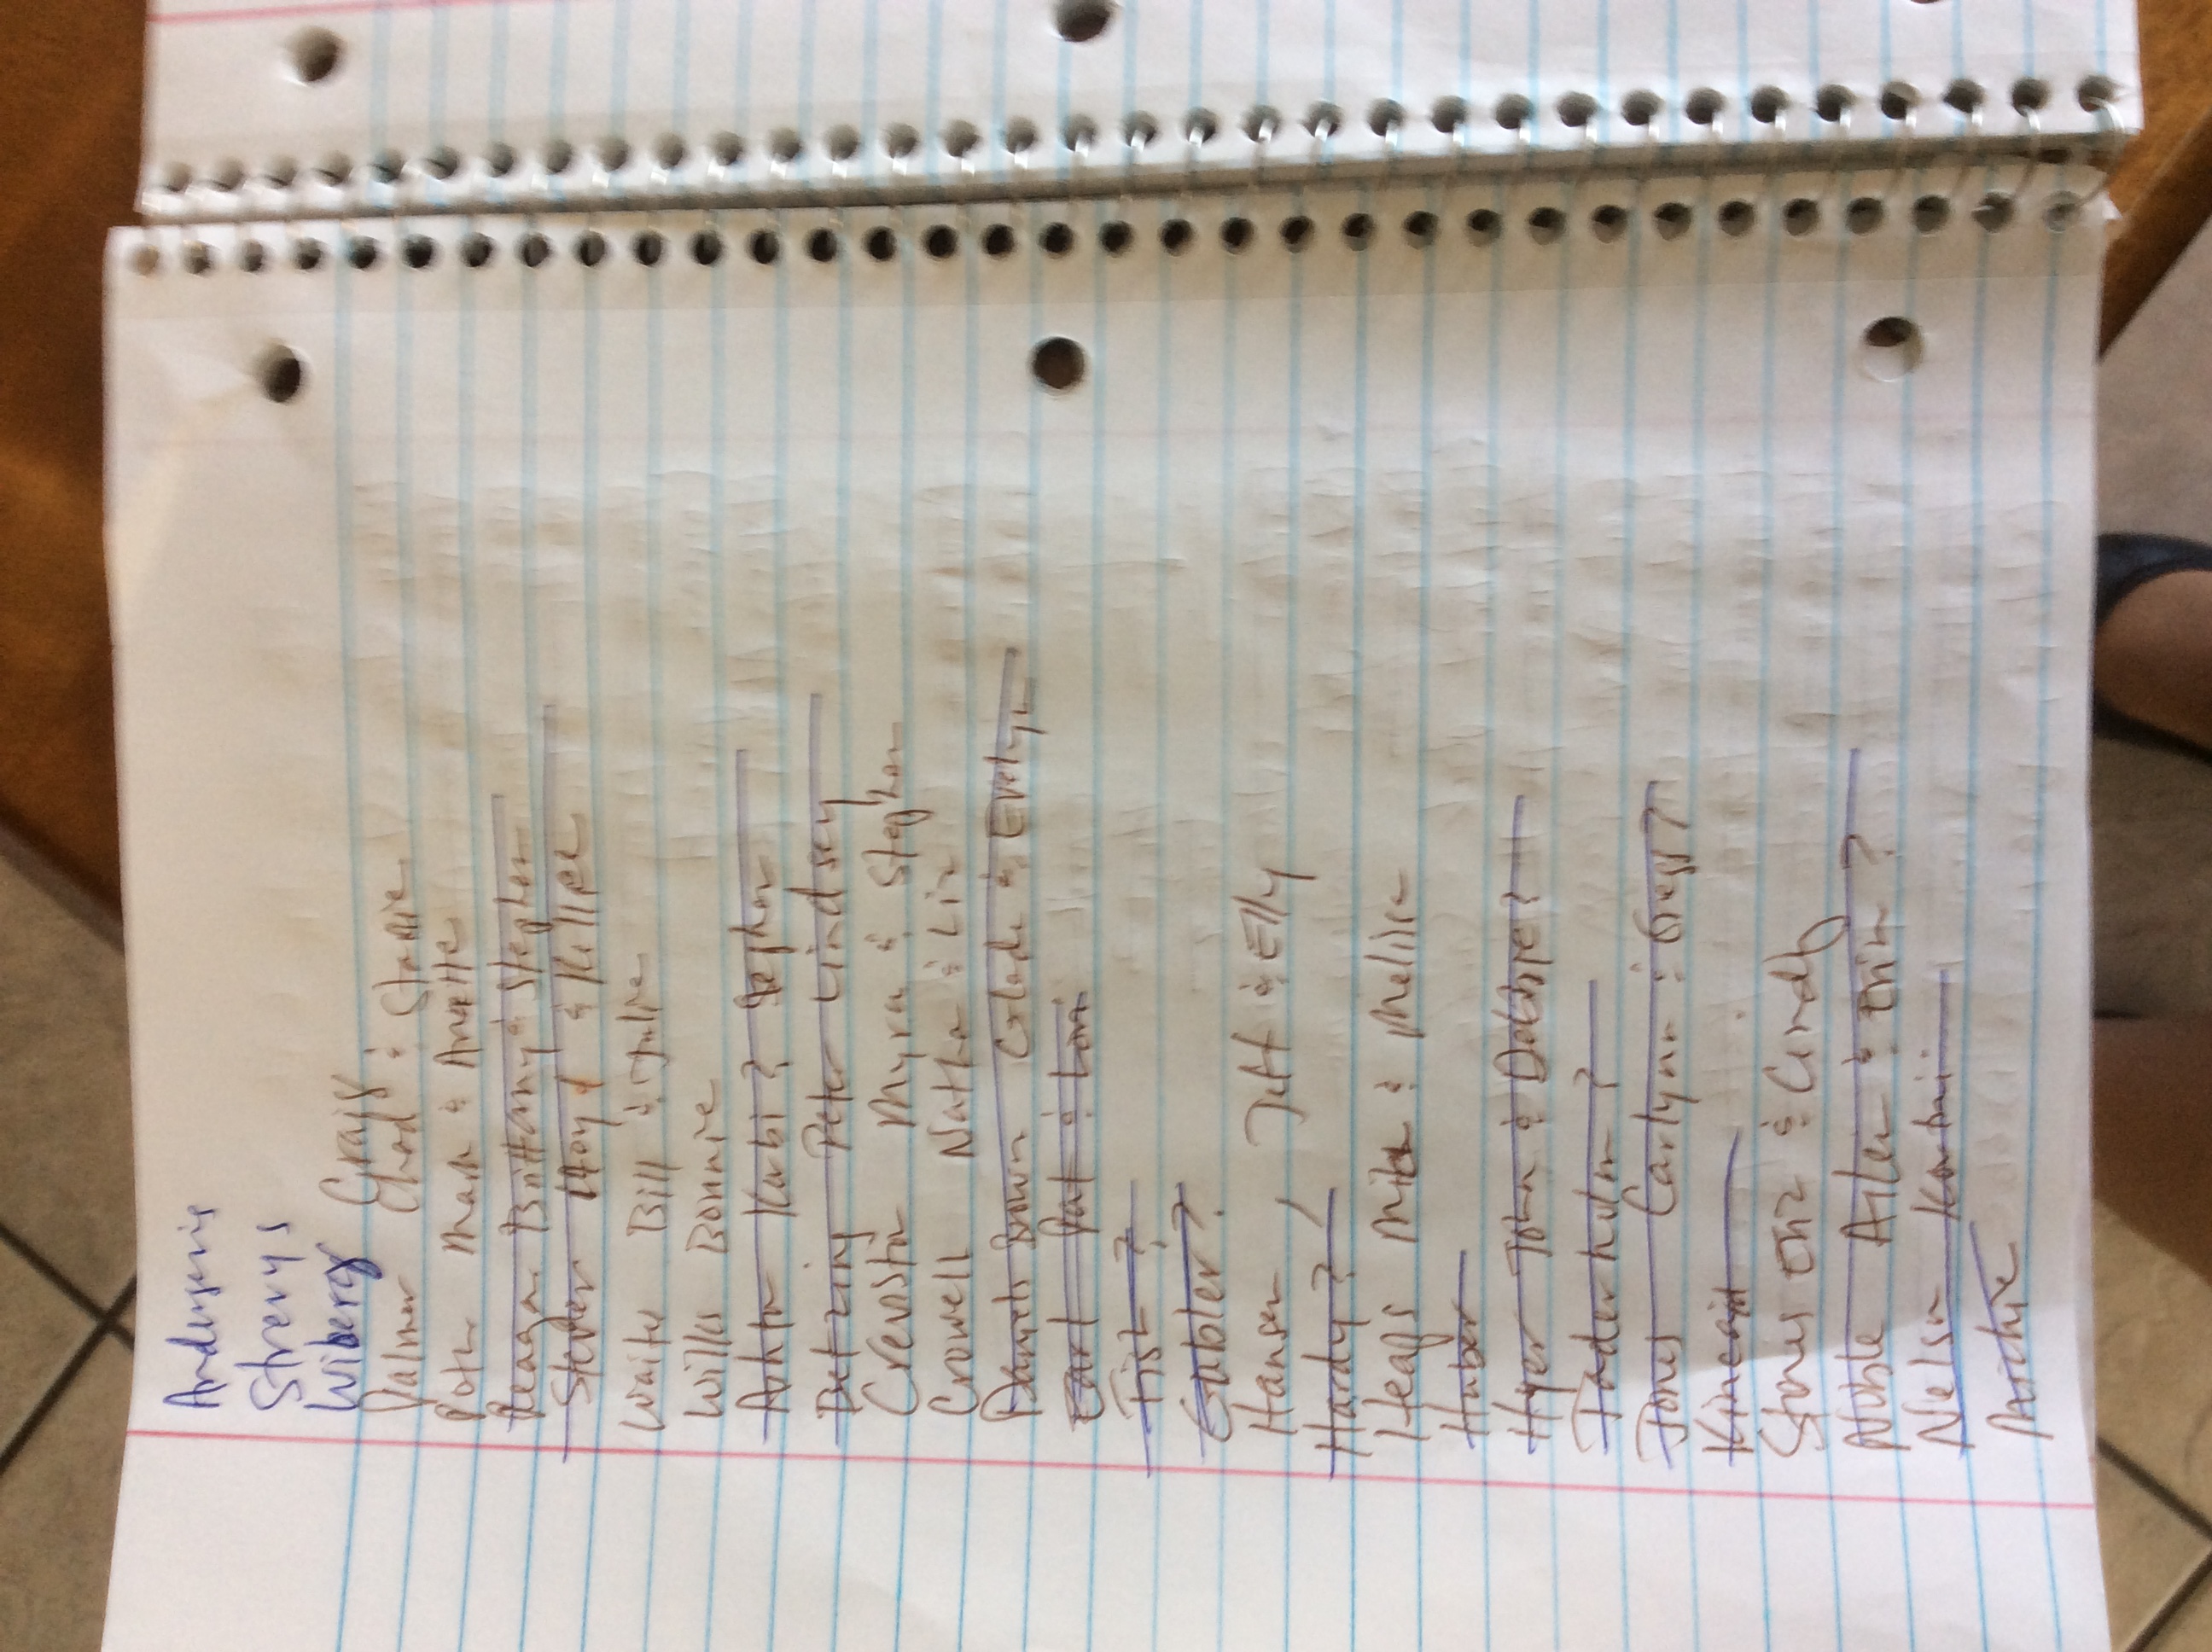 Andersens
Strevys
Wibergs Craig
Palmer Chad & Stacie
Mark & Anette
Reagan Brittany & Stephen
Stever Lloyd &
Waites Bill & Julie
Wilks Bonnie
Ashton Karbi? Stephen
Betzing Peter Lindsey
Creviston Myra & Stephen
Crowell Nathan & Liz
Daniels Brown Glade & Evelyn
Earl Pat & Lori
Fish ?
Gabler ?
Hansen , Jeff & Elly
Hardy ?
Heaps Mitch & Melissa
Huber
Hyer John & Debbie ?
Jaderholm ?
Jones Carlynn & Gregg ?
Kincaid
Stones Eric & Cindy
Noble Arlen & Erin ?
Nelson
Archie